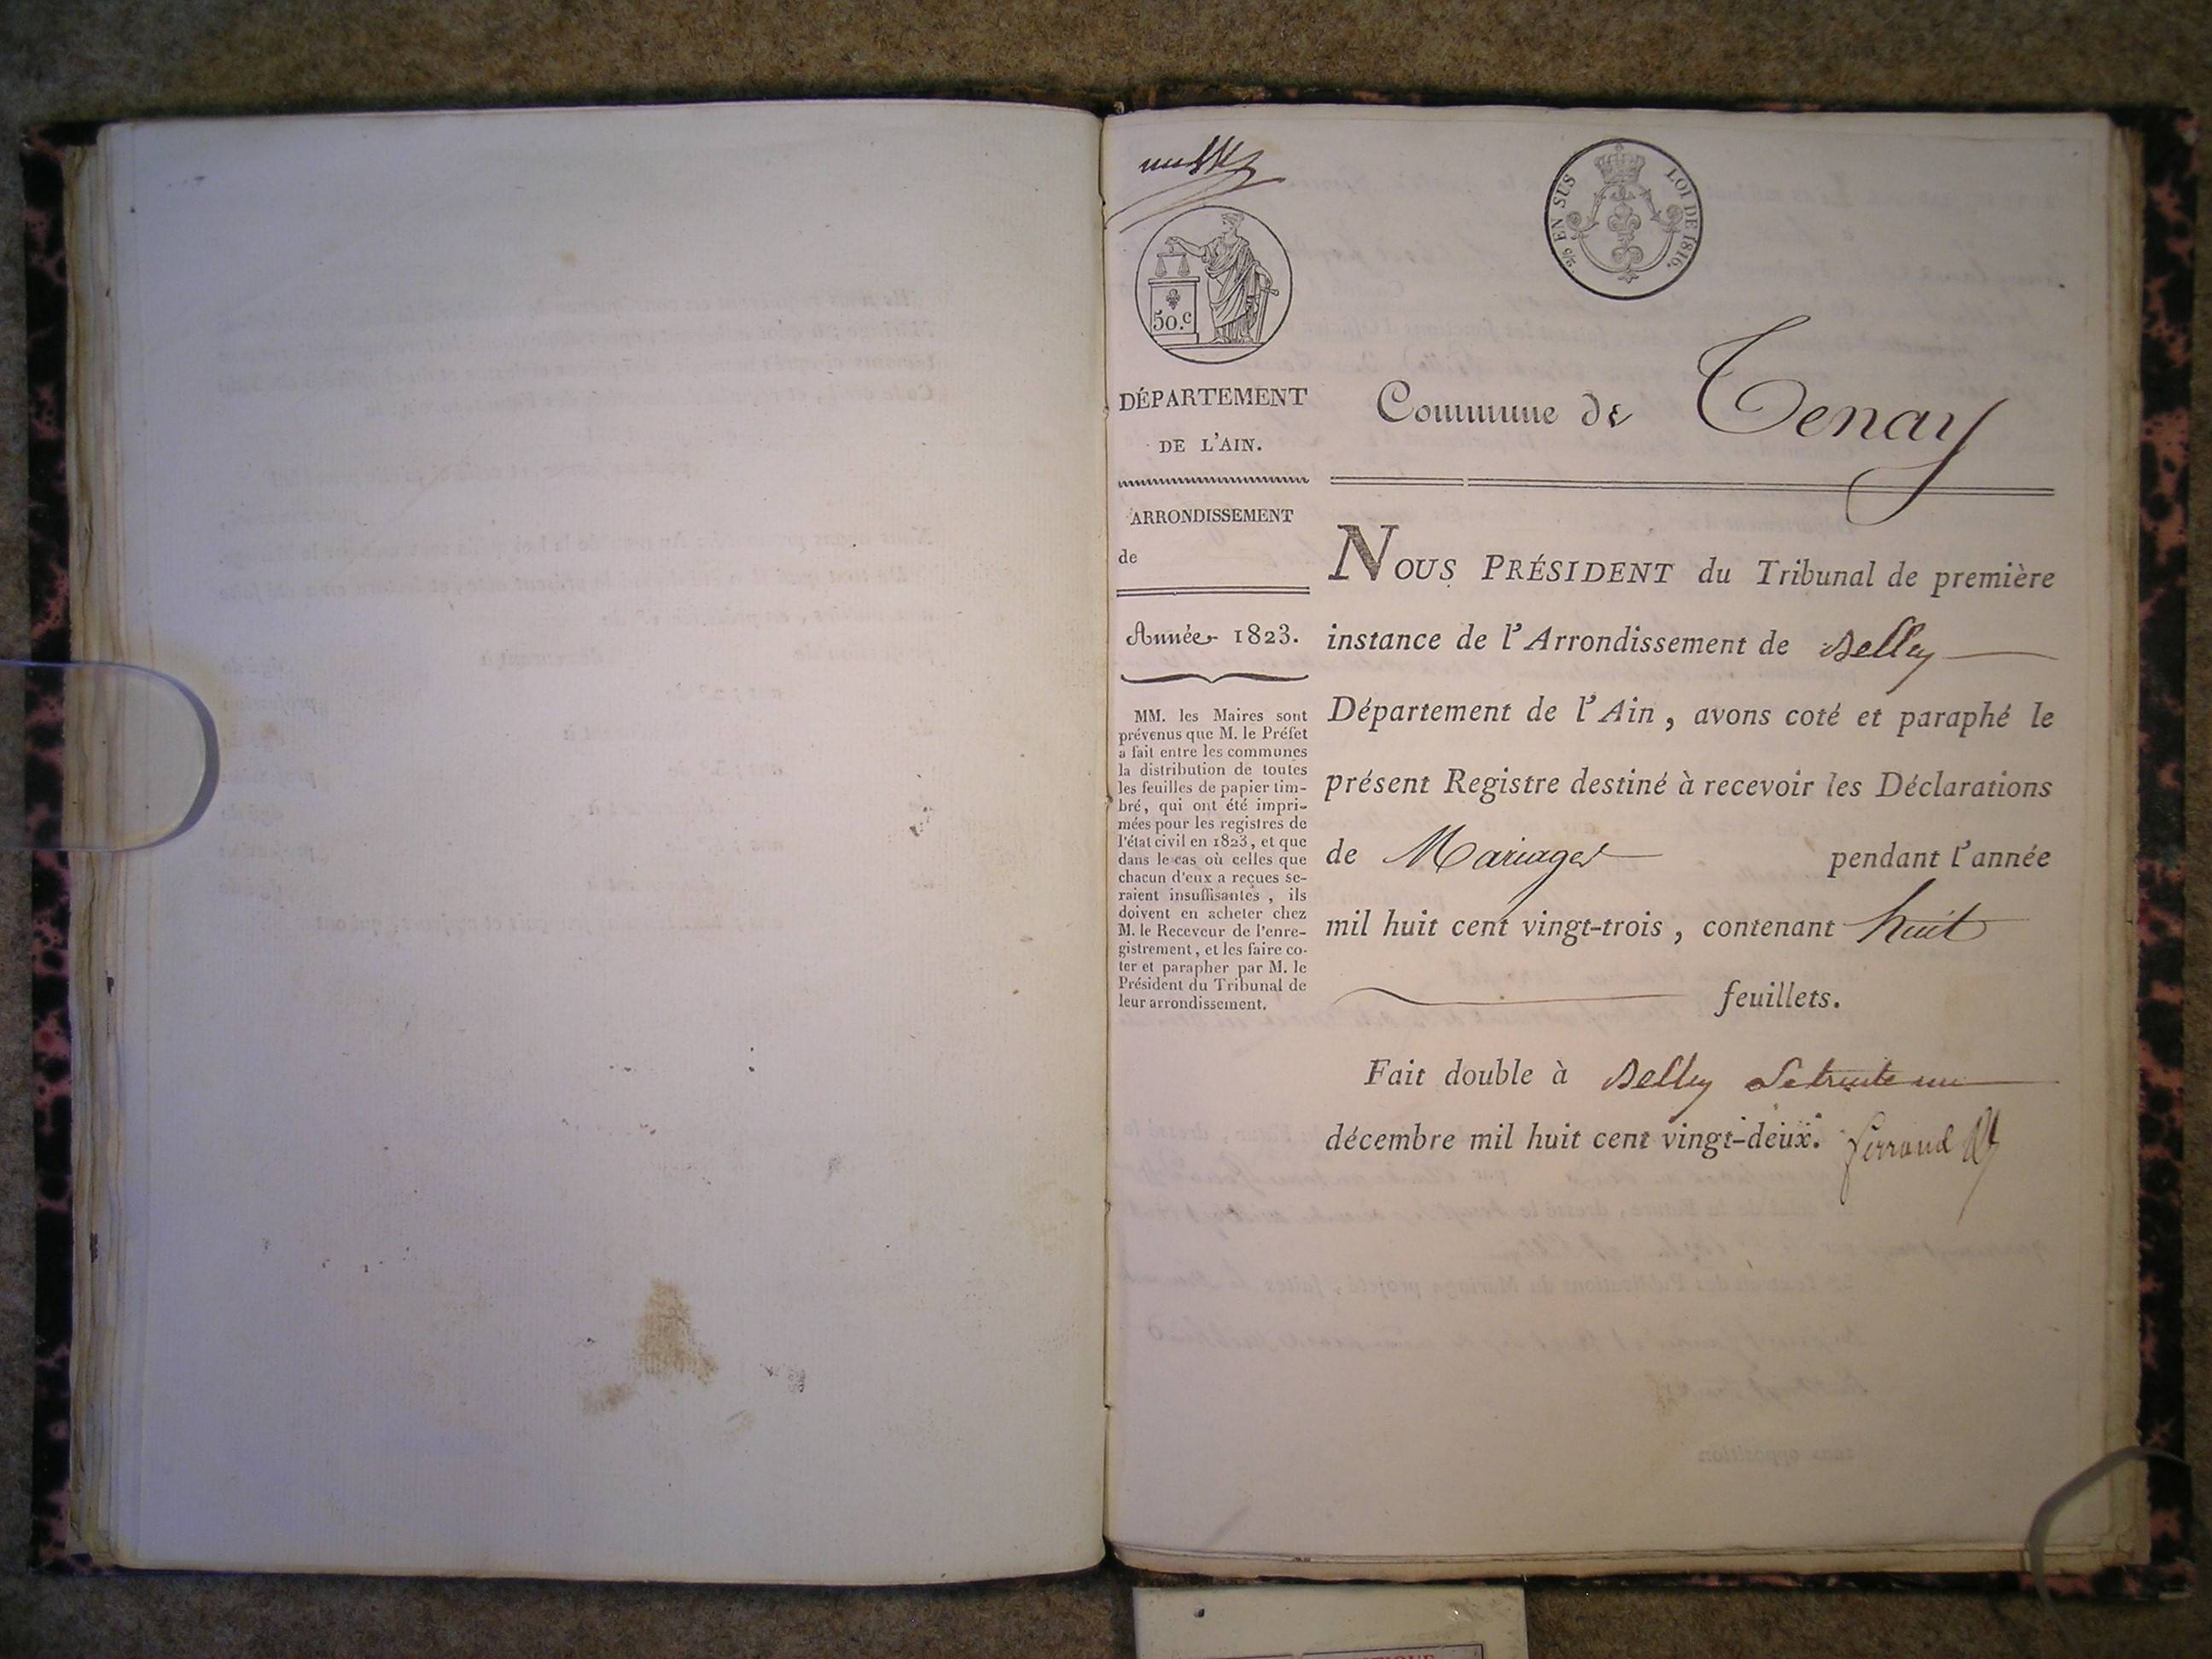 50.c
EN SUS
LOI DE 1816.
DÉPARTEMENT
DE L'AIN.
ARRONDISSEMENT
de
Année 1823.
MM. les Maires sont
prévenus que M. le Préfet
a fait entre les communes
la distribution de toutes
les feuilles de papier tim-
bré, qui ont été impri-
mées pour les registres de
l'état civil en 1823, et que
dans le cas où celles que
chacun d'eux a reçues se-
raient insuffisantes, ils
doivent en acheter chez
M. le Receveur de l'enre-
gistrement, et les faire co-
ter et parapher par M. le
Président du Tribunal de
leur arrondissement.
Commune de Tenay
NOUS PRÉSIDENT du Tribunal de première
instance de l'Arrondissement de Belley
Département de l'Ain, avons coté et paraphé le
présent Registre destiné à recevoir les Déclarations
de Mariages pendant l'année
mil huit cent vingt-trois, contenant huit
feuillets.
Fait double à Belley le trente un
décembre mil huit cent vingt-deux.